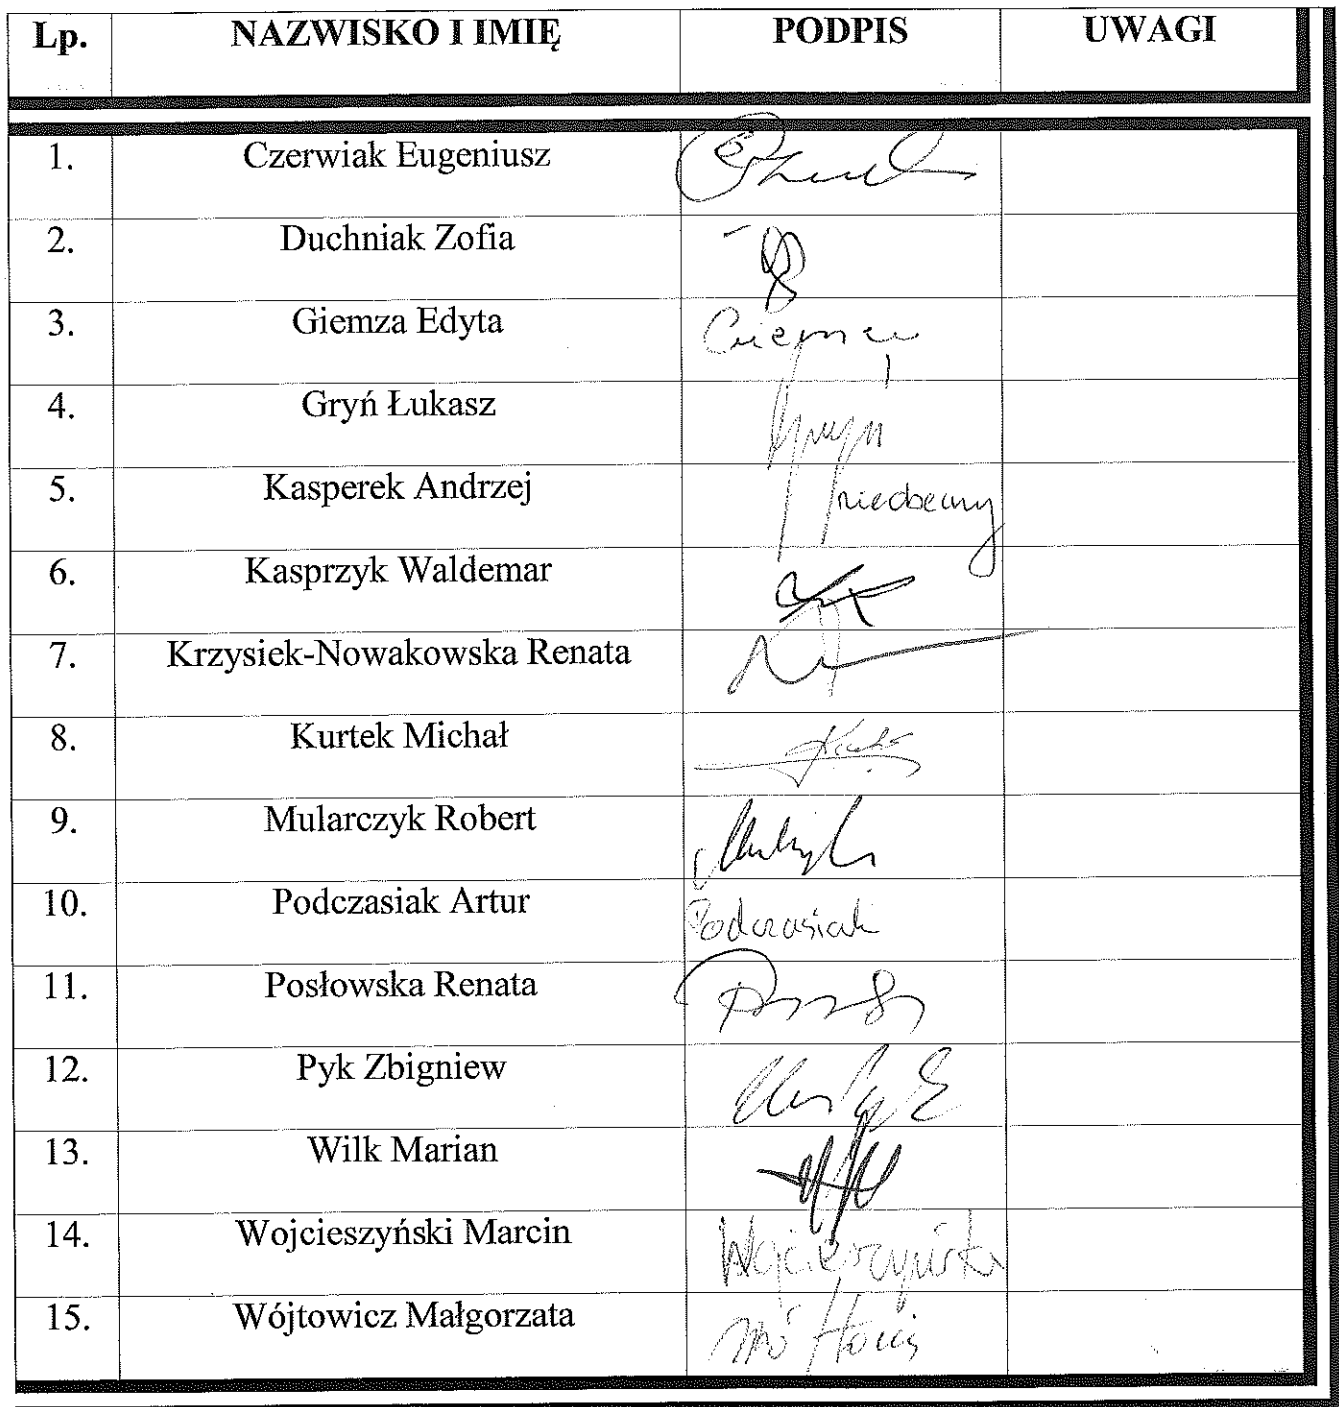 Lp. NAZWISKO I IMIĘ PODPIS UWAGI
1. Czerwiak Eugeniusz
2. Duchniak Zofia
3. Giemza Edyta
4. Gryń Łukasz
5. Kasperek Andrzej nieobecny
6. Kasprzyk Waldemar
7. Krzysiek-Nowakowska Renata
8. Kurtek Michał
9. Mularczyk Robert
10. Podczasiak Artur Podczasiak
11. Posłowska Renata
12. Pyk Zbigniew
13. Wilk Marian
14. Wojcieszyński Marcin
15. Wójtowicz Małgorzata